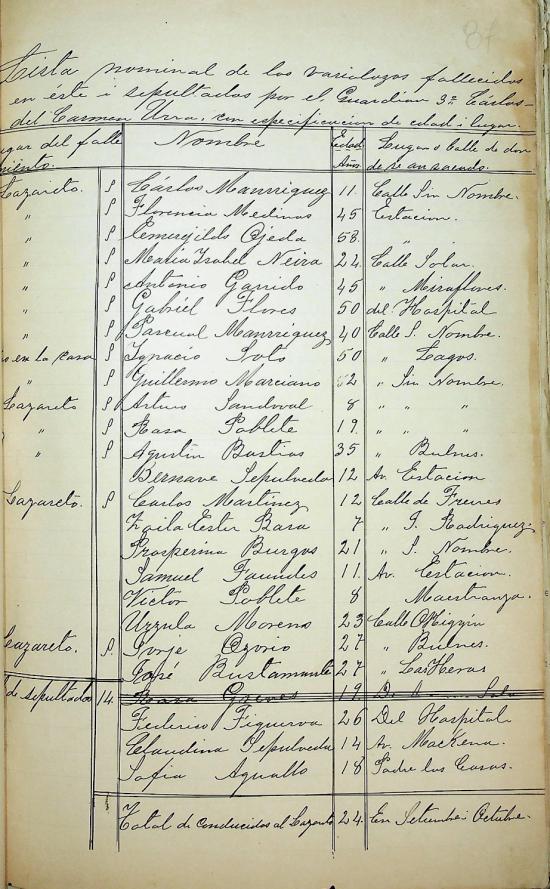 87
Lista nominal de los variolozos fallecidos
en éste i sepultados por el Guardian 3º Cárlos
del Cármen Urra, con especificacion de edad i lugar.
ugar del falle Nombre Edad Lugar o Calle de don
miento. Años de
Lazareto. S Cárlos Manrriguez 11 Calle Sin Nombre.
" S Florencia Medinas 45 Estacion.
" S Emerejildo Ojeda 58. "
" S Maria Isabel Neira 24 Calle Solar.
" S Antonio Garrido 45 " Miraflores.
" S Gabriel Flores 50 del Hospital
" S Pascual Manrriguez 40 Calle S. Nombre.
en la casa S Ignacio Soto 50 " Lagos.
" S Guillermo Marciano 52 " Sin Nombre.
Lazareto S Arturo Sandoval 8 " "
" S Rasa Poblete 19. " "
" S Agustin Bastias 35 " Bulnes.
Bernave Sepulveda 12 Av. Estacion
Lazareto. S Carlos Martinez 12 Calle de Freires
Zaila Ester Basa 7 " J. Rodriguez.
Prosperina Burgos 21 " S. Nombre.
Samuel Faundes 11. Av. Estacion.
Victor Poblete 8 Maestranza.
Urzula Moreno 23 Calle OHiggin
Lazareto. S. Jorje Ozorio 27 " Bulnes.
José Bustamante 27 " Las Heras
de sepultados 14. Rasa 19.
Federico Figueroa 26 Del Hospital
Claudina Sepulveda 14 Av. MacKena.
Sofia Aguallo 18 Padre las Casas.
Total de conducidos al Lazareto 24. En Setiembre i Octubre.